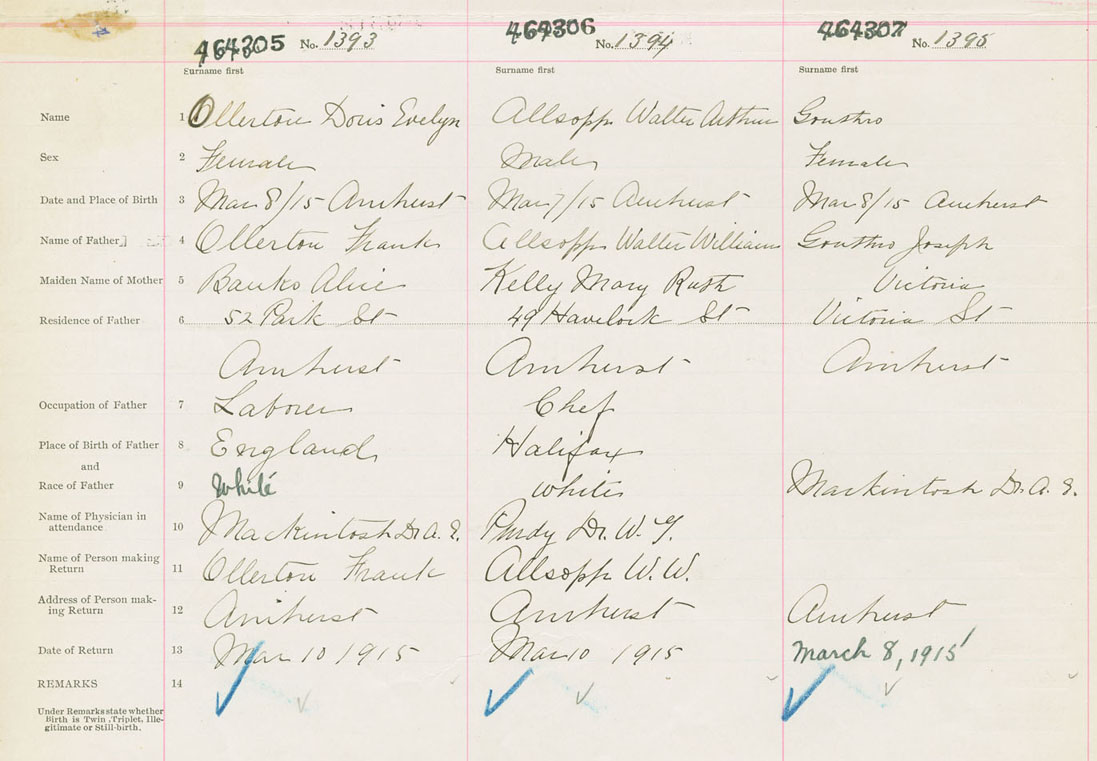 464305 No. 1393 464306 No. 1394 464307 No. 1395
Surname first Surname first Surname first
Name 1 Ollerton Doris Evelyn Allsopp Walter Arthur Gouthro
Sex 2 Female Male Female
Date and Place of Birth 3 Mar 8/15 Amherst Mar 7/15 Amherst Mar 8/15 Amherst
Name of Father 4 Ollerton Frank Allsopp Walter William Gouthro Joseph
Maiden Name of Mother 5 Banks Alice Kelly Mary Ruth Victoria
Residence of Father 6 52 Park St 49 Havelock St Victoria St
Amherst Amherst Amherst
Occupation of Father 7 Laborer Chef
Place of Birth of Father 8 England Halifax
and
Race of Father 9 White White Mackintosh Dr. A. E.
Name of Physician in
attendance 10 Mackintosh Dr A. E. Purdy Dr. W. G.
Name of Person making
Return 11 Ollerton Frank Allsopp W. W.
Address of Person mak-
ing Return 12 Amherst Amherst Amherst
Date of Return 13 Mar 10 1915 Mar 10 1915 March 8, 1915
REMARKS 14
Under Remarks state whether
Birth is Twin, Triplet, Ille-
gitimate or Still-birth.